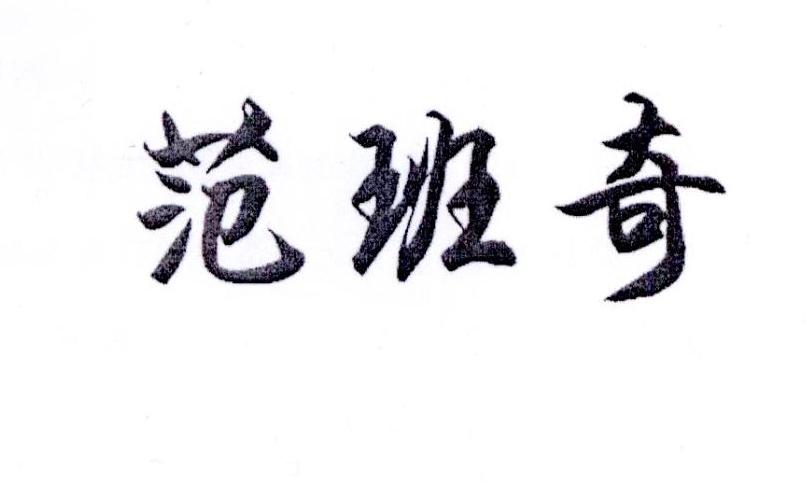 范班奇